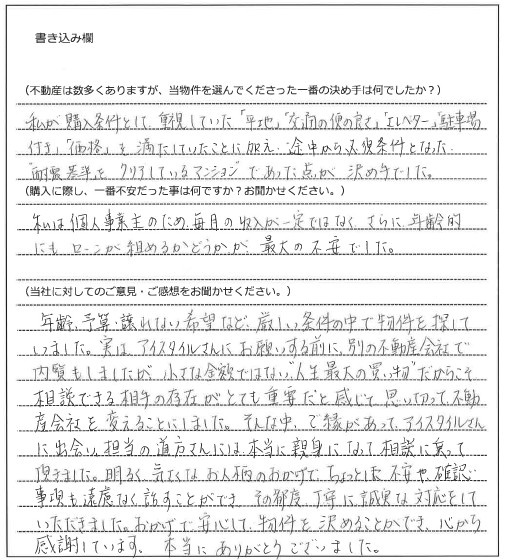 書き込み欄
(不動産は数多くありますが、当物件を選んでくださった一番の決め手は何でしたか？)
私が購入条件として、重視していた「平地」「交通の便の良さ」「エレベーター」「駐車場
付き」「価格」を満たしていたことに加え、途中から必須条件となった
"耐震基準をクリアしているマンション"であった点が決め手でした。
(購入に際し、一番不安だった事は何ですか？お聞かせください。)
私は個人事業主のため、毎月の収入が一定ではなく、さらに、年齢的
にもローンが組めるかどうかが、最大の不安でした。
(当社に対してのご意見・ご感想をお聞かせください。)
年齢、予算、譲れない希望など、厳しい条件の中で物件を探して
いました。実は、アイスタイルさんにお願いする前に、別の不動産会社で
内覧もしましたが、小さな金額ではない"人生最大の買い物"だからこそ
相談できる相手の存在がとても重要だと感じて、思い切って不動
産会社を変えることにしました。そんな中、ご縁があって、アイスタイルさん
に出会い、担当の道方さんには、本当に親身になって相談に乗って
頂きました。明るく気さくなお人柄のおかげで、ちょっとした不安や、確認
事項も遠慮なく話すことができ、その都度、丁寧に誠実な対応をして
いただきました。おかげで安心して、物件を決めることができ、心から
感謝しています。本当にありがとうございました。